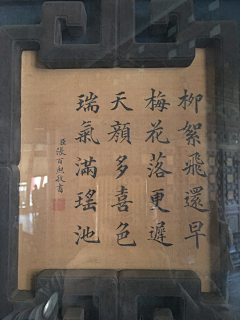 柳絮飛還早
梅花落更遲
天顔多喜色
瑞氣滿瑤池
臣張百熙敬書